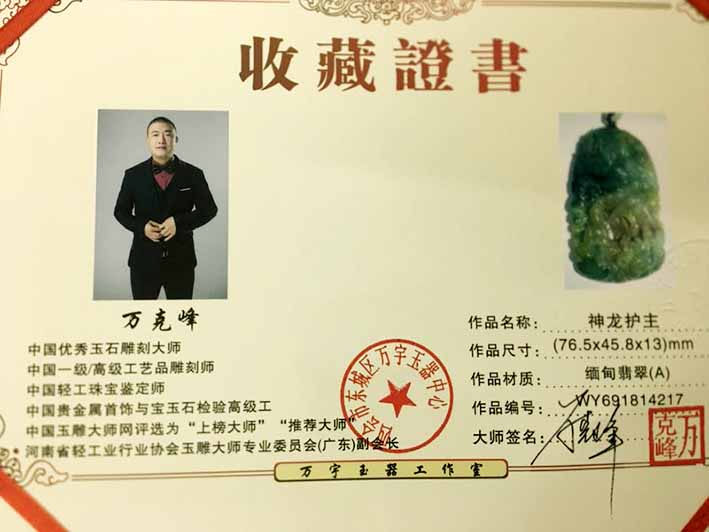 收藏證書
万克峰
中国优秀玉石雕刻大师
中国一级/高级工艺品雕刻师
中国轻工珠宝鉴定师
中国贵金属首饰与宝玉石检验高级工
中国玉雕大师网评选为“上榜大师”“推荐大师”
河南省轻工业行业协会玉雕大师专业委员会(广东)副会长
市东城区万宇玉器中心
作品名称: 神龙护主
作品尺寸: (76.5x45.8x13)mm
作品材质: 缅甸翡翠(A)
作品编号: WY691814217
大师签名:
万克峰
万宇玉器工作室